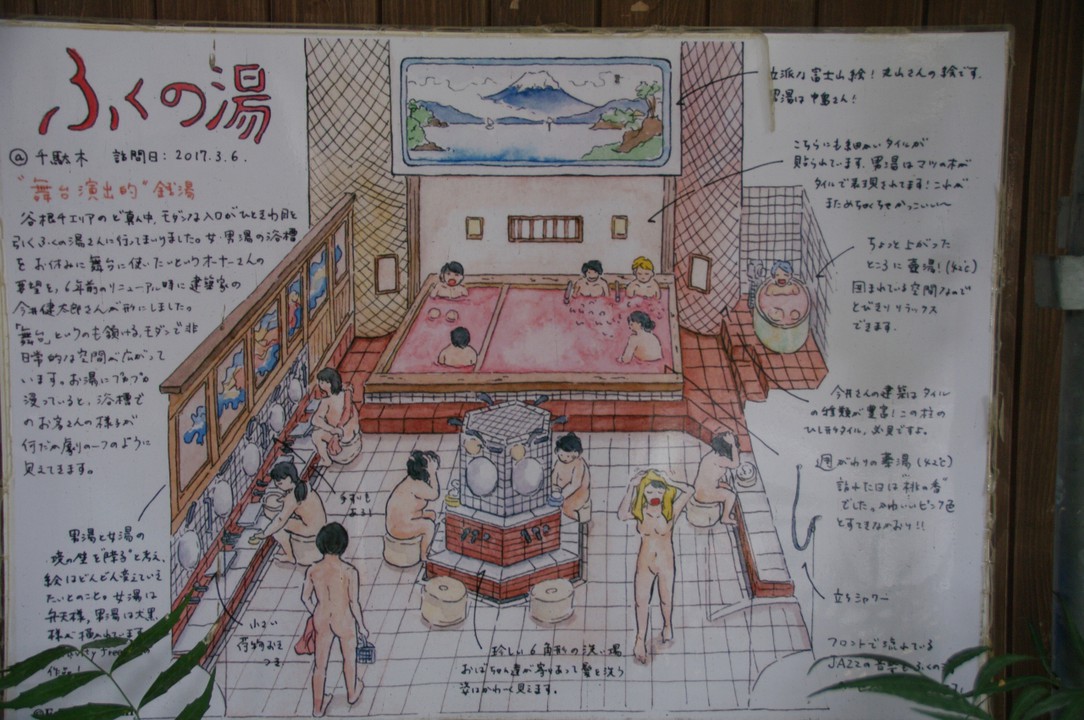 ふくの湯
@千駄木 訪問日：2017.3.6.
"舞台演出的"銭湯
谷根千エリアのど真ん中、モダンな入口がひときわ目を
引くふくの湯さんに行ってまいりました。女・男湯の浴槽
をお休みに舞台に使いたいというオーナーさんの
要望を、6年前のリニューアル時に建築家の
今井健太郎さんが形にしました。
「舞台」というのも頷ける、モダンで非
日常的な空間が広がって
います。お湯にプカプカ
浸っていると、浴槽で
のお客さんの様子が
何だか劇の一つのように
見えてきます。
男湯と女湯の
境の壁を"障子"と考え、
絵はどんどん変えていき
たいとのこと。女湯は
弁天様、男湯は大黒
様が描かれています
作品
立派な富士山絵！丸山さんの絵です。
男湯は中島さん！
こちらにも細かいタイルが
貼られています。男湯はマツの木が
タイルで表現されてます！これが
まためちゃくちゃかっこいい〜
ちょっと上がった
ところに壺湯！
囲まれている空間なので
とびきりリラックス
できます。
今井さんの建築はタイル
の種類が豊富！この柱の
ひし形タイル、必見ですよ。
週がわりの薬湯
訪れた日は"桃の香"
でした。かわいいピンク色
とすてきなかおり!!
立ちシャワー
手すりも
あるよ！
小さい
荷物おき
つき
珍しい6角形の洗い場
おばちゃん達が寄りあって髪を洗う
姿はかわいく見えます。
フロントで流れている
JAZZの音